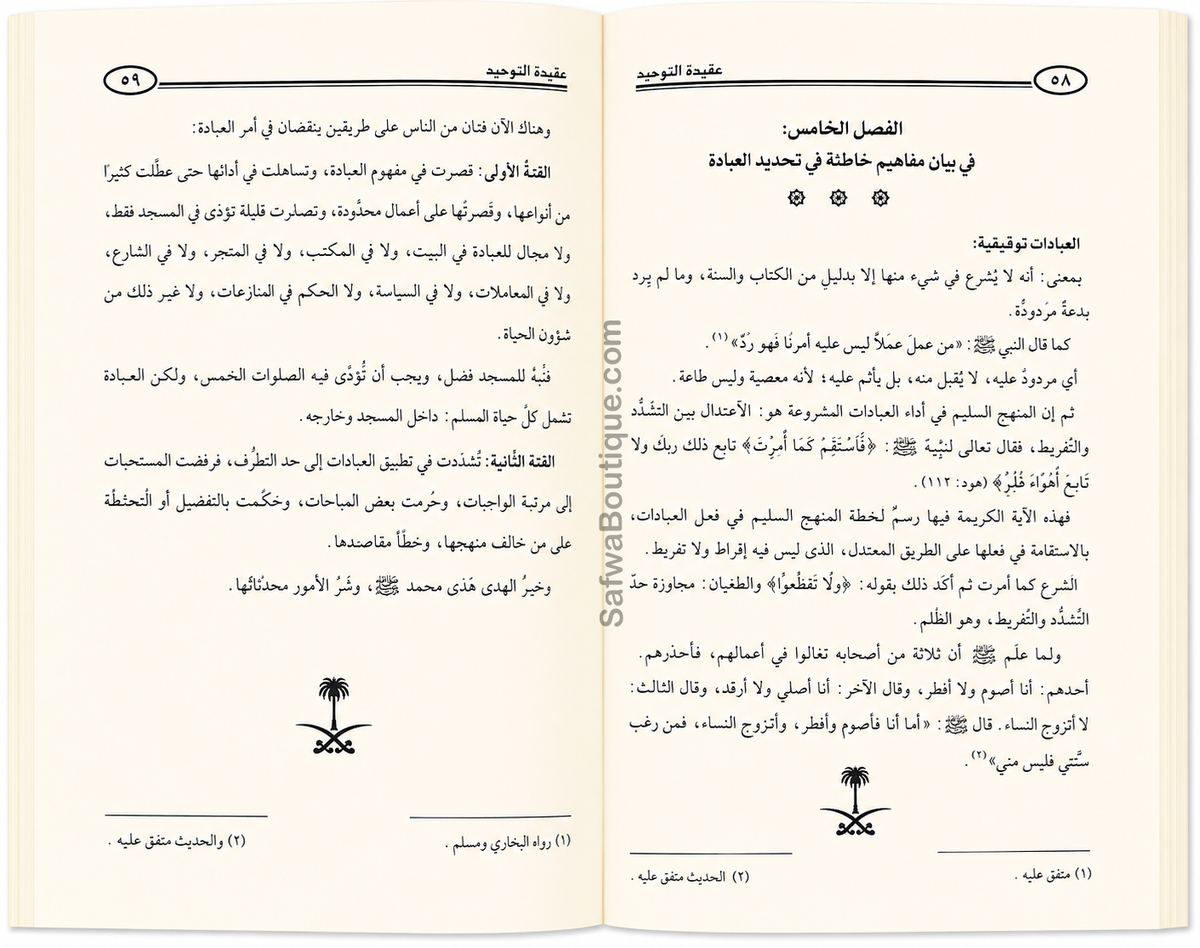 ٥٨
عقيدة التوحيد
الفصل الخامس:
في بيان مفاهيم خاطئة في تحديد العبادة
العبادات توقيقية:
بمعنى: أنه لا يُشرع في شيء منها إلا بدليلِ من الكتاب والسنة، وما لم يرِد
بدعةٌ مرَدودُّة.
كما قال النبي ﷺ: «من عملَ عمَلاً ليس عليه أمرنُا فَهو رُدٌّ»(١).
أي مردودٌ عليه، لا يُقبل منه، بل يأثم عليه؛ لأنه معصية وليس طاعة.
ثم إن المنهج السليم في أداء العبادات المشروعة هو: الأعتدال بين التشَدُّد
والتُفريط، فقال تعالى لنبِّيهَ ﷺ: ﴿فَٱسْتَقِمُ كَمَا أُمِرْتَ﴾ تابع ذلك ربكَ ولا
تَابعَ أُهُوُاءَ﴾ (هود: ١١٢).
فهذه الآية الكريمة فيها رسمٌ لخطة المنهج السليم في فعل العبادات،
بالاستقامة في فعلها على الطريق المعتدل، الذى ليس فيه إقراط ولا تفريط.
الَشرع كما أمرت ثم أكَد ذلك بقوله: ﴿ولُا تَقظُعوُا﴾ والطغيان: مجاوزة حدّ
التُشدُّد والتُفريط، وهو الظُلم.
ولما علَم ﷺ أن ثلاثة من أصحابه تغالوا في أعمالهم، فأحذرهم.
أحدهم: أنا أصوم ولا أفطر، وقال الآخر: أنا أصلي ولا أرقد، وقال الثالث:
لا أتزوج النساء. قال ﷺ: «أما أنا فأصوم وأفطر، وأتزوج النساء، فمن رغب
ستَّتي فليس مني»(٢).
(١) متفق عليه .
(٢) الحديث متفق عليه .
عقيدة التوحيد
٥٩
وهناك الآن فتان من الناس على طريقين ينقضان في أمر العبادة:
القتةُ الأولى: قصرت في مفهوم العبادة، وتساهلت في أدائها حتى عطَّلت كثيرًا
من أنواعها، وقَصرتُها على أعمال محدَّودة، وتصلرت قليلة تؤذى في المسجد فقط،
ولا مجال للعبادة في البيت، ولا في المكتب، ولا في المتجر، ولا في الشارع،
ولا في المعاملات، ولا في السياسة، ولا الحكم في المنازعات، ولا غير ذلك من
شؤون الحياة.
فنُبهُ للمسجد فضل، ويجب أن تُّؤدَّى فيه الصلوات الخمس، ولكن العبادة
تشمل كلَّ حياة المسلم: داخل المسجد وخارجه.
الفتة الثُانية: تُشدَدت في تطبيق العبادات إلى حد التطرُّف، فرفضت المستحبات
إلى مرتبة الواجبات، وحُرمت بعض المباحات، وحَكُمت بالتفضيل أو الُتحتْطُة
على من خالف منهجها، وخطُأ مقاصدها.
وخيرُ الهدى هَذى محمد ﷺ، وشَرُ الأمور محدُثاتُها.
(١) رواه البخاري ومسلم .
(٢) والحديث متفق عليه .
SafwaBoutique.com